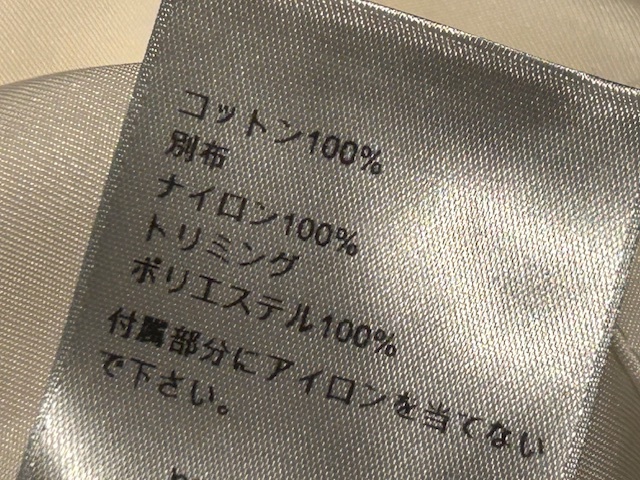 コットン100%
別布
ナイロン100%
トリミング
ポリエステル100%
付属部分にアイロンを当てない
で下さい。